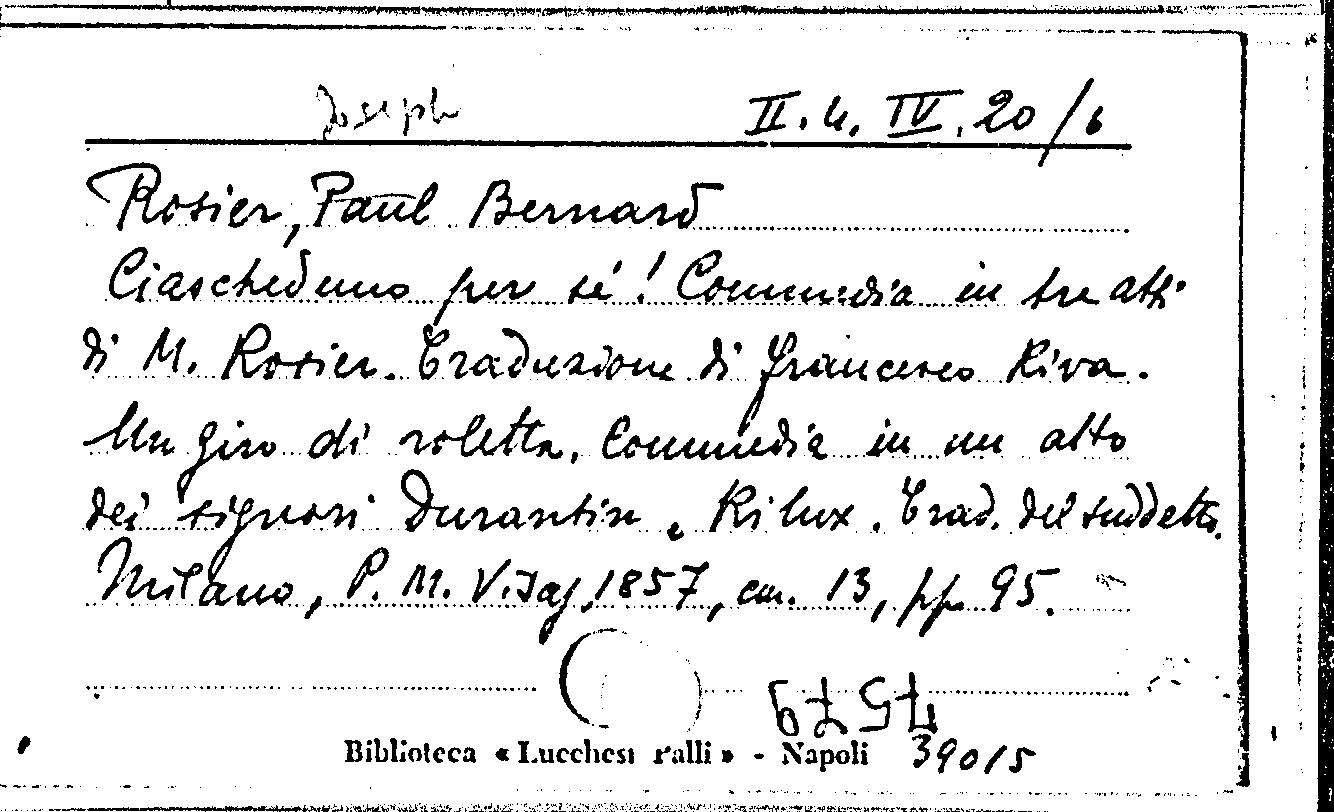 Joseph
II.4.IV.20/6
Rosier, Paul Bernard
Ciascheduno per sé! Commedia in tre atti
di M. Rosier. Traduzione di Francesco Riva.
Un giro di roletta. Commedia in un atto
dei signori Durantin e Rilux. Trad. del suddetto.
Milano, P. M. Visaj, 1857, cm. 13, pp. 95.
Biblioteca « Lucchesi Palli » - Napoli 39015